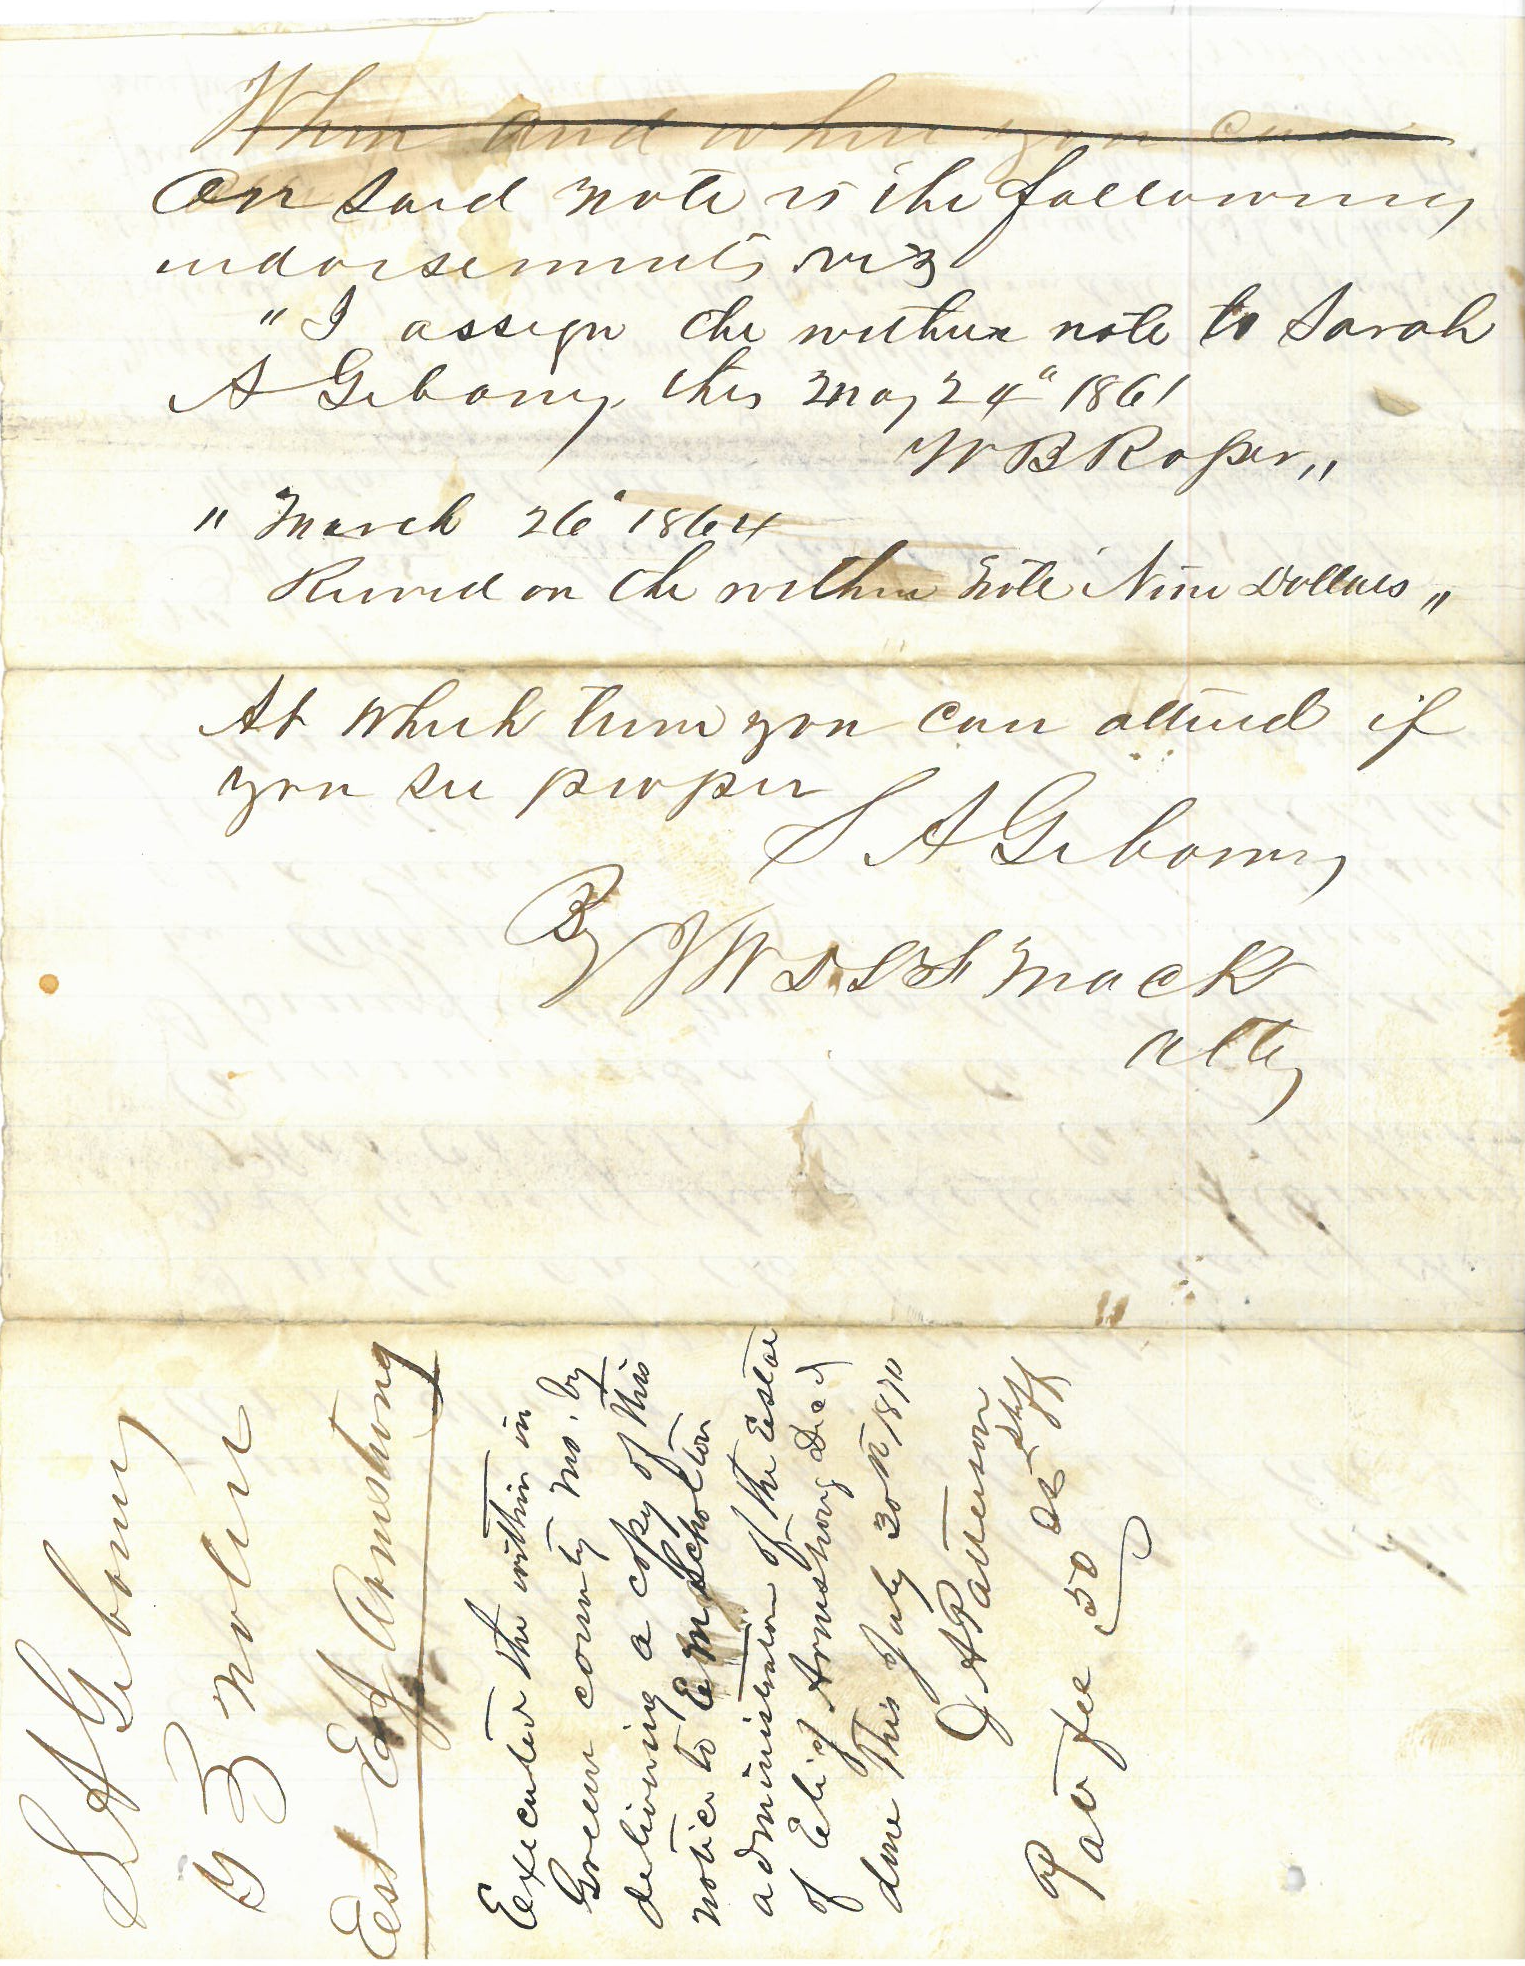 When and where you can
On said note is the following
indorsements viz
" I assign the within note to Sarah
A Gibony, this May 24" 1861
W B Roper "
" March 26" 1864
Received on the within note Nine Dollars "
At which time you can attend if
you see proper
S A Gibony
By J W D L F Mack
atty
S A Gibony
Notice
Est Eli Armstrong
Executed the within in
Green county Mo. by
delivering a copy of this
notice to E M Scholton
administrator of the Estate
of Eli of Armstrong Decd
done This July 30th 1870
J A Patterson
Shff
Paid fee 50 cts